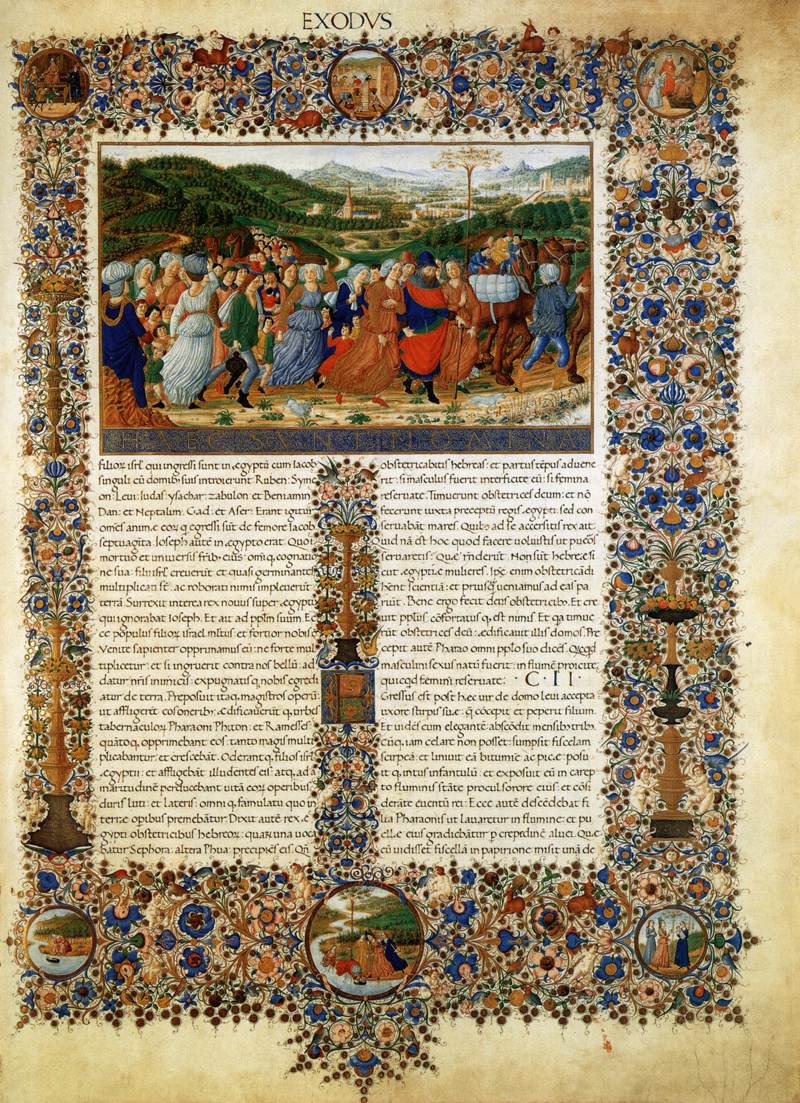 EXODVS
HAEC SVNT NOMINA
filior isrl qui ingressi sunt in egyptū cum Iacob
singuli cū domib suis introierunt Ruben: Syme
on: Leui: Iudas ysachar: zabulon et Beniamin
Dan: et Neptalim: Gad: et Aser: Erant igitur
omēs animæ eoꝝ q egressi sūt de femore Iacob
septuagīta Ioseph autē in egypto erat: Quo
mortuo et uniuersis frīb eius: omiq cognatio
ne sua: filii isrl creuerūt et quasi germinantes
multiplicati st: ac roborati nimis impleuerūt
terrā Surrexit interea rex nouus super egyptū
qui ignorabat Ioseph: Et ait ad pplm suum Ec
ce populus filioꝝ israel mltus: et fortior nobis
Venite sapienter opprimamus eū: ne forte mul
tiplicetur: et si ingruerit contra nos bellū: ad
datur nris inimicis: expugnatis q nobis egredi
atur de terra: Preposuit itaq magistros operū
ut affligerēt eos onerib: ędificauerūt q urbes
tabernaculoꝝ Pharaoni Phiton: et Ramesses
quātoq opprimebant eos: tanto magis multi
plicabantur: et crescebāt: Oderantq filios isrl
egyptii: et affligebāt illudentes eis: atq ad a
maritudinē perducebant uitā eoꝝ operibus
duris luti: et lateris: omni q famulatu quo in
terrę opibus premebātur: Dixit autē rex ę
gypti obstetricibus hebreoꝝ: quaꝝ una uoca
batur Sephora: altera Phua: precipiēs eis: Qn̄
obstetricabitis hebreas: et partus tēpus aduene
rit: si masculus fuerit interficite eū: si femina
reseruate: Timuerunt obstetrices deum: et nō
fecerunt iuxta preceptū regis egypti: sed con
seruabāt mares: Quib ad se accersitis rex ait
Quid nā est hoc quod facere uoluistis ut pueros
seruaretis: Quę rn̄derūt: Non sūt hebreę si
cut ęgyptię mulieres: Ipę enim obstetricādi
hēnt scientiā: et priusq ueniamus ad eas pa
riūt: Bene ergo fecit deus obstetricib: Et cre
uit pplus: cōfortatus q est nimis: Et qa timue
rūt obstetrices deū: ędificauit illis domos: Pre
cepit autē Pharao omni pplo suo dicēs: Qcqd
masculini sexus natū fuerit: in flumē proicite:
quicqd feminī reseruate: · C · II ·
Gressus est post hęc uir de domo leui accepta
uxore stirpis suę: q cōcepit et peperit filium
Et uidēs eum elegantē: abscōdit mensib trib
Cūq iam celare nōn posset: sumpsit fiscelam
scirpeā: et liniuit eā bitumie: ac pice: posu
it q intus infantulū: et exposuit eū in carep
to fluminis: stāte procul sorore eius: et cōsi
derāte euentū rei: Ecce autē descēdebat fi
lia Pharaonis ut lauaretur in flumine: et pu
ellę eius gradiebātur p crepidinē aluei: Quę
cū uidisset fiscellā in papirione: misit unā de